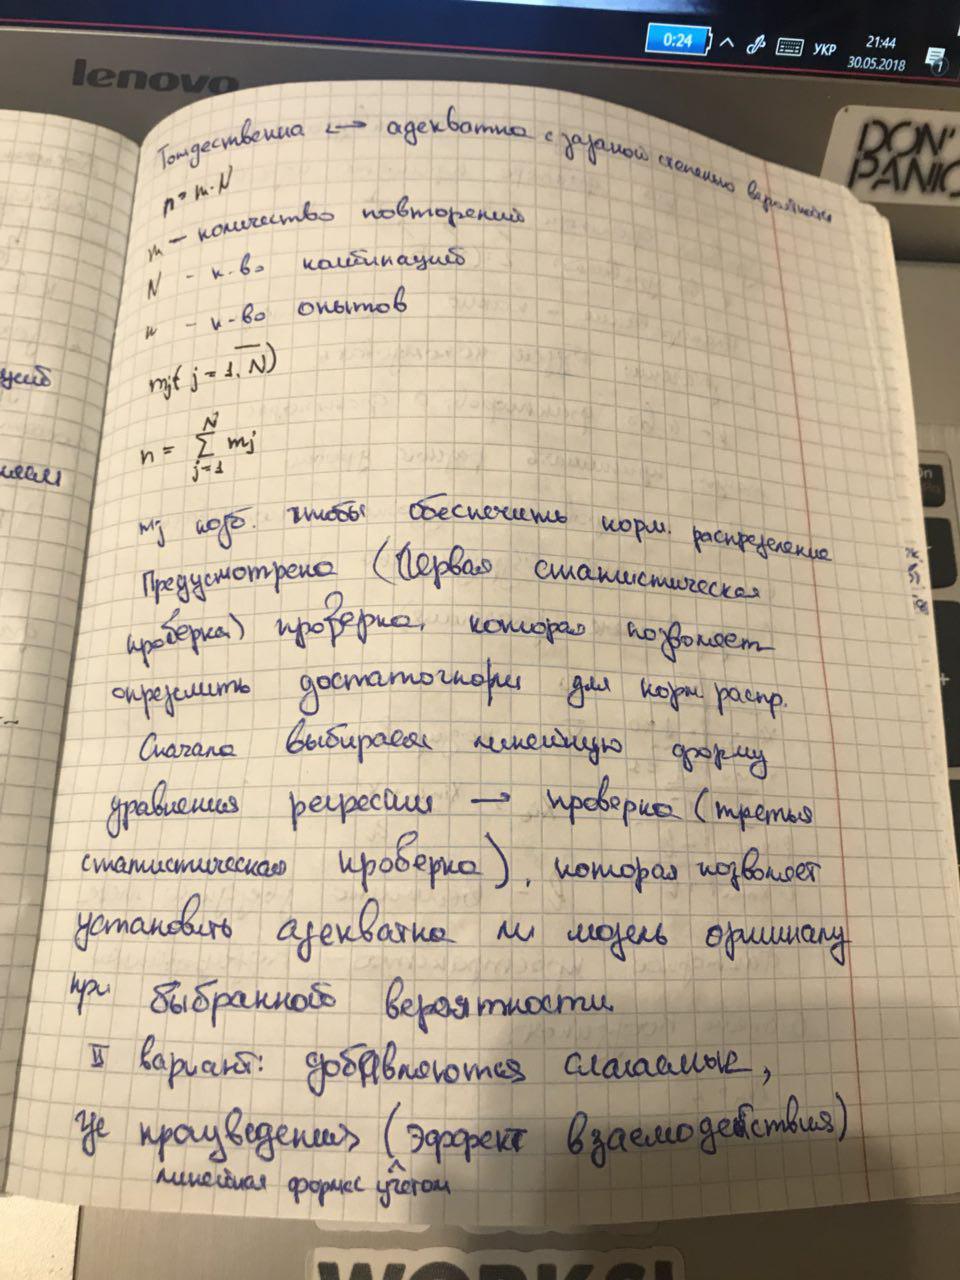 0:24
УКР
21:44
30.05.2018
1
lenovo
DON'T
PANIC
Тождественна ↔ адекватна с заданой степенью вероятности
n = m·N
m – количество повторений
N – к-во комбинаций
n – к-во опытов
mj (j = 1, N)
n = N Σ j=1 mj
mj подб. чтобы обеспечить норм. распределение
Предусмотрена (Первая статистическая
проверка) проверка, которая позволяет
определить достаточно ли для норм распр.
Сначала выбираем линейную форму
уравнения регрессии → проверка (третья
статистическая проверка), которая позволяет
установить адекватна ли модель оригиналу
при выбранной вероятности
II вариант: добавляются слагаемые,
где произведения (эффект взаемодействия)
линейная форма с учётом
WORKS!